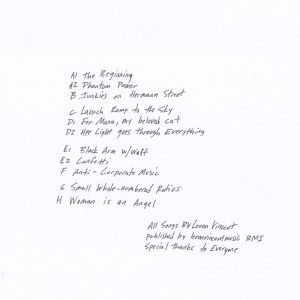 A1 The Beginning
A2 Phantom Power
B. Junkies on Hermann Street
C Launch Ramp to the Sky
D1 For Mona, my beloved cat
D2 Her Light goes through Everything
E1 Black Arm w/Wolf
E2 Confetti
F Anti-Corporate Music
G Small Whole-numbered Ratios
H Woman is an Angel
All Songs By Levon Vincent
published by levonvincentmusic BMI
Special thanks to Everyone